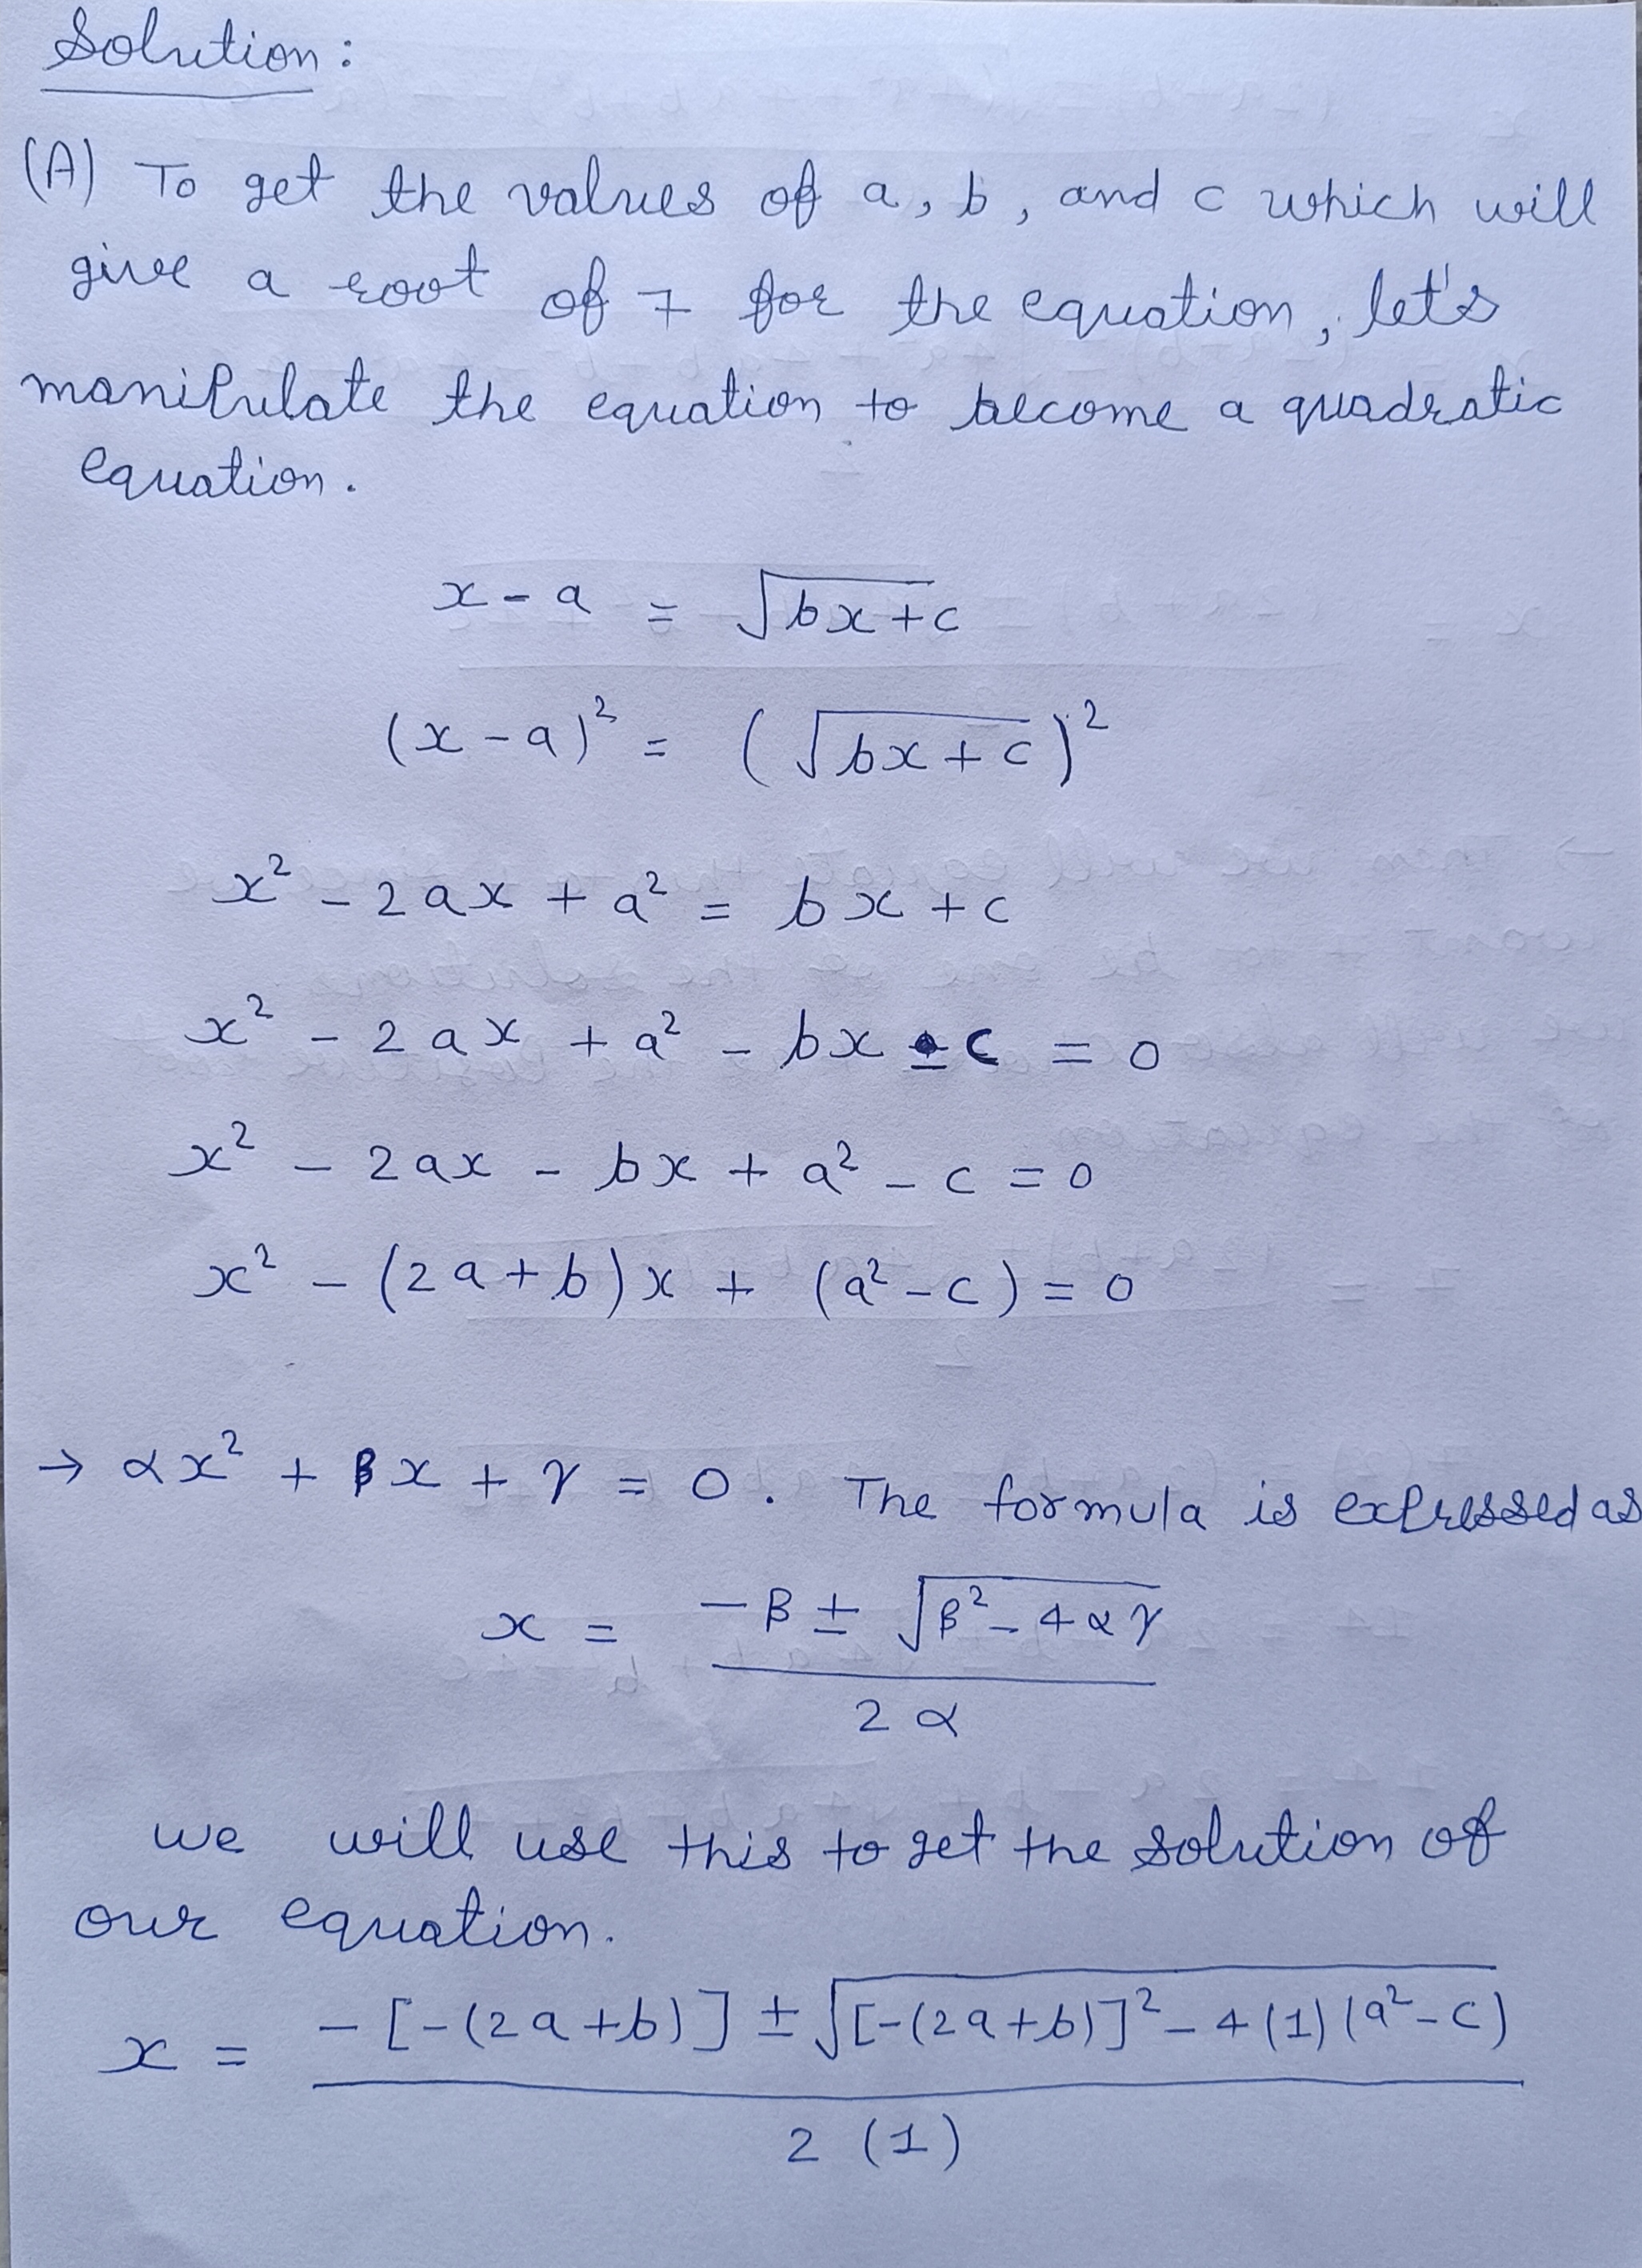 Solution:
(A) To get the values of a, b, and c which will
give a root of 7 for the equation, let's
manipulate the equation to become a quadratic
equation.
x - a = √(bx+c)
(x - a)² = (√(bx+c))²
x² - 2ax + a² = bx + c
x² - 2ax + a² - bx - c = 0
x² - 2ax - bx + a² - c = 0
x² - (2a+b)x + (a²-c) = 0
→ αx² + βx + γ = 0. The formula is expressed as
x = (-β ± √(β² - 4αγ)) / 2α
we will use this to get the solution of
our equation.
x = (-[-(2a+b)] ± √([-(2a+b)]² - 4(1)(a²-c))) / 2(1)